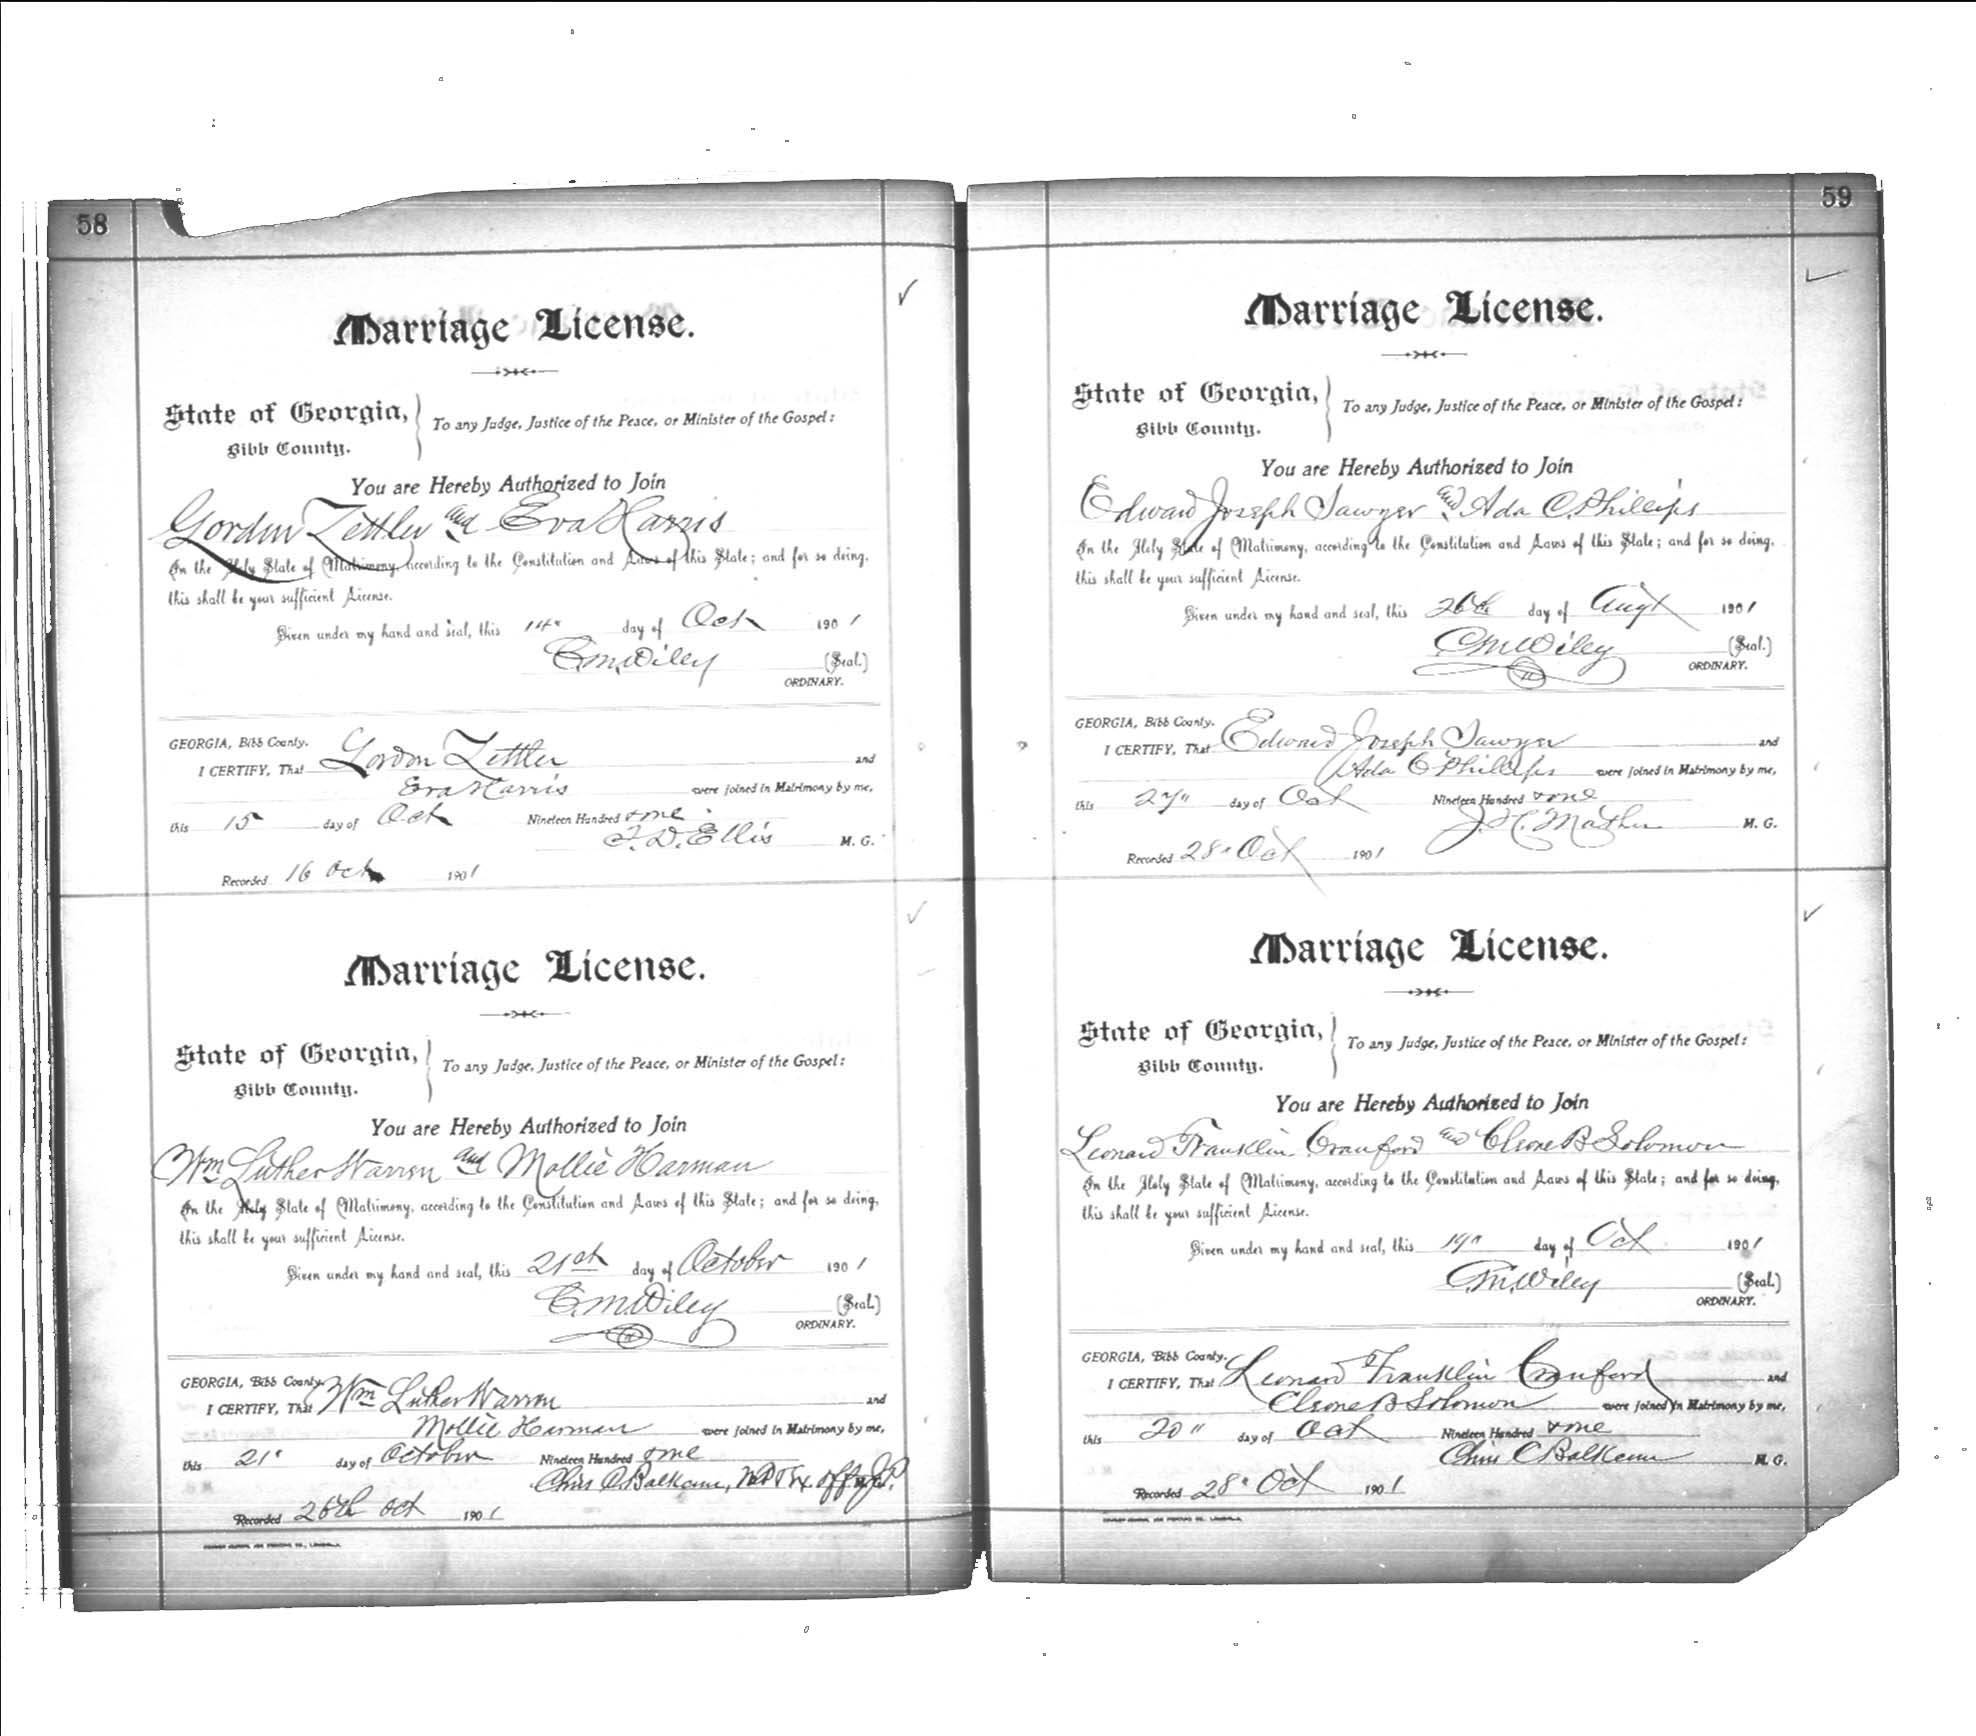 58
Marriage License.
State of Georgia,
Bibb County.
To any Judge, Justice of the Peace, or Minister of the Gospel:
You are Hereby Authorized to Join
Gordon Zettler and Eva Harris
In the Holy State of Matrimony, according to the Constitution and Laws of this State; and for so doing,
this shall be your sufficient License.
Given under my hand and seal, this 14" day of Oct 1901
C.M. Wiley (Seal.)
ORDINARY.
GEORGIA, Bibb County.
I CERTIFY, That Gordon Zettler and
Eva Harris were joined in Matrimony by me,
this 15 day of Oct Nineteen Hundred & one
T. D. Ellis M. G.
Recorded 16 Oct 1901
Marriage License.
State of Georgia,
Bibb County.
To any Judge, Justice of the Peace, or Minister of the Gospel:
You are Hereby Authorized to Join
Wm Luther Warren and Mollie Harman
In the Holy State of Matrimony, according to the Constitution and Laws of this State; and for so doing,
this shall be your sufficient License.
Given under my hand and seal, this 21st day of October 1901
C.M. Wiley (Seal.)
ORDINARY.
GEORGIA, Bibb County.
I CERTIFY, That Wm Luther Warren and
Mollie Harman were joined in Matrimony by me,
this 21" day of October Nineteen Hundred & one
Chas C Balkcom, J.P.
Recorded 26th Oct 1901
59
Marriage License.
State of Georgia,
Bibb County.
To any Judge, Justice of the Peace, or Minister of the Gospel:
You are Hereby Authorized to Join
Edward Joseph Sawyer and Ada C. Phillips
In the Holy State of Matrimony, according to the Constitution and Laws of this State; and for so doing,
this shall be your sufficient License.
Given under my hand and seal, this 26th day of Augt 1901
C.M. Wiley (Seal.)
ORDINARY.
GEORGIA, Bibb County.
I CERTIFY, That Edward Joseph Sawyer and
Ada C Phillips were joined in Matrimony by me,
this 27" day of Oct Nineteen Hundred & one
J. H. M. G.
Recorded 28" Oct 1901
Marriage License.
State of Georgia,
Bibb County.
To any Judge, Justice of the Peace, or Minister of the Gospel:
You are Hereby Authorized to Join
Leonard Franklin Cranford and B Solomon
In the Holy State of Matrimony, according to the Constitution and Laws of this State; and for so doing,
this shall be your sufficient License.
Given under my hand and seal, this 19" day of Oct 1901
C.M. Wiley (Seal.)
ORDINARY.
GEORGIA, Bibb County.
I CERTIFY, That Leonard Franklin Cranford and
B Solomon were joined in Matrimony by me,
this 20" day of Oct Nineteen Hundred & one
Chas C Balkcom M. G.
Recorded 28" Oct 1901